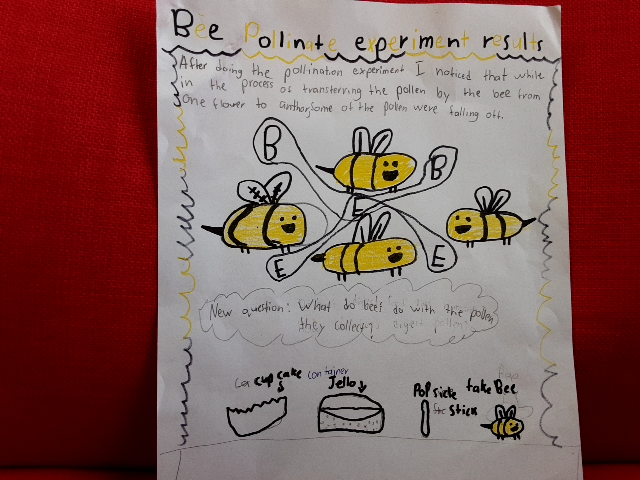 Bee Pollinate experiment results
After doing the pollination experiment I noticed that while
in the process of transterring the pollen by the bee from
one flower to anthor, some of the pollen were falling off.
B
B
E
E
E
New question: What do bees do with the pollen
they collect?
cup cake container
Jello
Pop sicle
stick
fake Bee